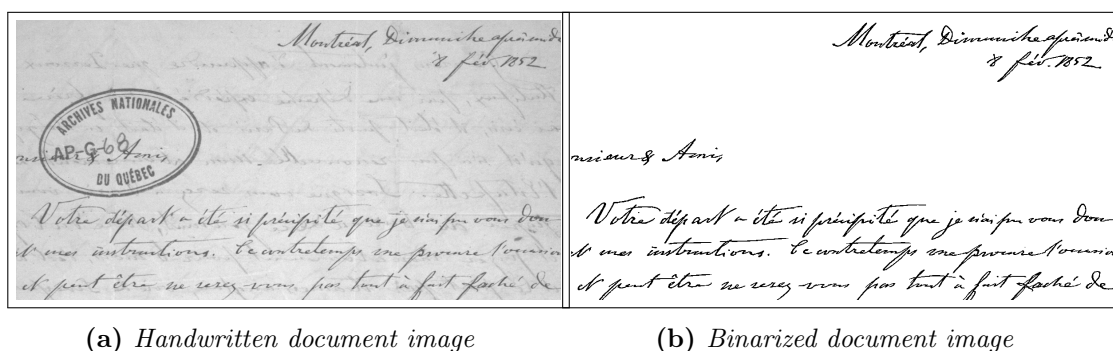 Montréal, Dimanche après mid
8 fév. 1852
ARCHIVES NATIONALES
AP-G-68
DU QUÉBEC
nsieur & Ami,
Votre départ a été si précipité que je n'ai pu vous don
et mes instructions. Ce contretemps me procure l'occasion
et peut être ne serez vous pas tout à fait faché de
(a) Handwritten document image
Montréal, Dimanche après mid
8 fév. 1852
nsieur & Ami,
Votre départ a été si précipité que je n'ai pu vous don
mes instructions. Ce contretemps me procure l'occasion
et peut être ne serez vous pas tout à fait faché de
(b) Binarized document image